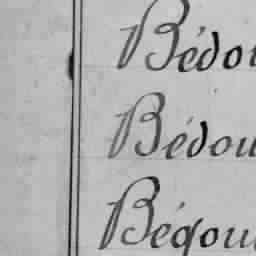 Bédou
Bédou
Bégou